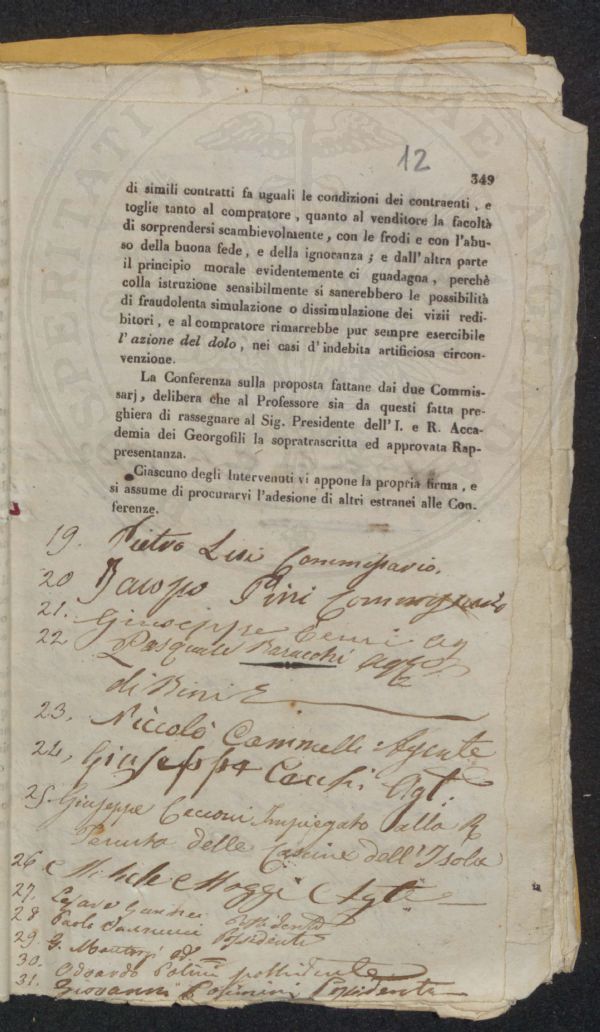 12
349
di simili contratti fa uguali le condizioni dei contraenti, e
toglie tanto al compratore, quanto al venditore la facoltà
di sorprendersi scambievolmente, con le frodi e con l'abu-
so della buona fede, e della ignoranza; e dall'altra parte
il principio morale evidentemente ci guadagna, perchè
colla istruzione sensibilmente si sanerebbero le possibilità
di fraudolenta simulazione o dissimulazione dei vizii redi-
bitori, e al compratore rimarrebbe pur sempre esercibile
l'azione del dolo, nei casi d'indebita artificiosa circon-
venzione.
La Conferenza sulla proposta fattane dai due Commis-
sarj, delibera che al Professore sia da questi fatta pre-
ghiera di rassegnare al Sig. Presidente dell'I. e R. Acca-
demia dei Georgofili la sopratrascritta ed approvata Rap-
presentanza.
Ciascuno degli Intervenuti vi appone la propria firma, e
si assume di procurarvi l'adesione di altri estranei alle Con-
ferenze.
19. Pietro Lisi Commissario.
20 Jacopo Pini Commissario
21. Giuseppe
22 Pasquale
di Bini
23. Niccolò Cammelli Agente
24, Giuseppe Cecchi Agt:
25. Giuseppe Cecconi Impiegato alla R
Tenuta delle Cascine dell'Isola
26 Michele Maggi Agte
27. Cesare Possidente
28 Paolo Possidente
29. G.
30. Odoardo Polini possidente
31. Giovanni Possidente